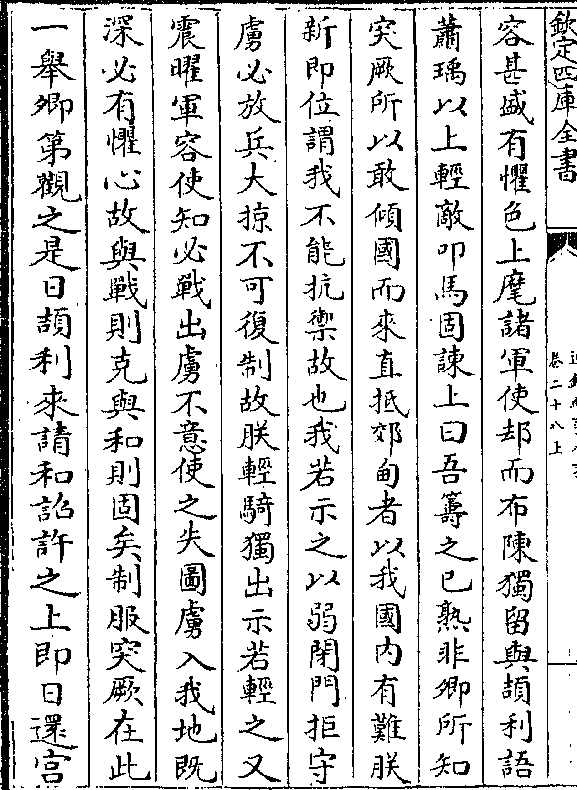 欽定四庫全書
卷二十八上
容甚盛有懼色上麾諸軍使却而布陳獨留與頡利語
蕭瑀以上輕敵叩馬固諫上曰吾籌之已熟非卿所知
突厥所以敢傾國而來直抵郊甸者以我國內有難朕
新即位謂我不能抗禦故也我若示之以弱閉門拒守
虜必放兵大掠不可復制故朕輕騎獨出示若輕之又
震曜軍容使知必戰出虜不意使之失圖虜入我地既
深必有懼心故與戰則克與和則固矣制服突厥在此
一舉卿第觀之是日頡利來請和詔許之上即日還宮